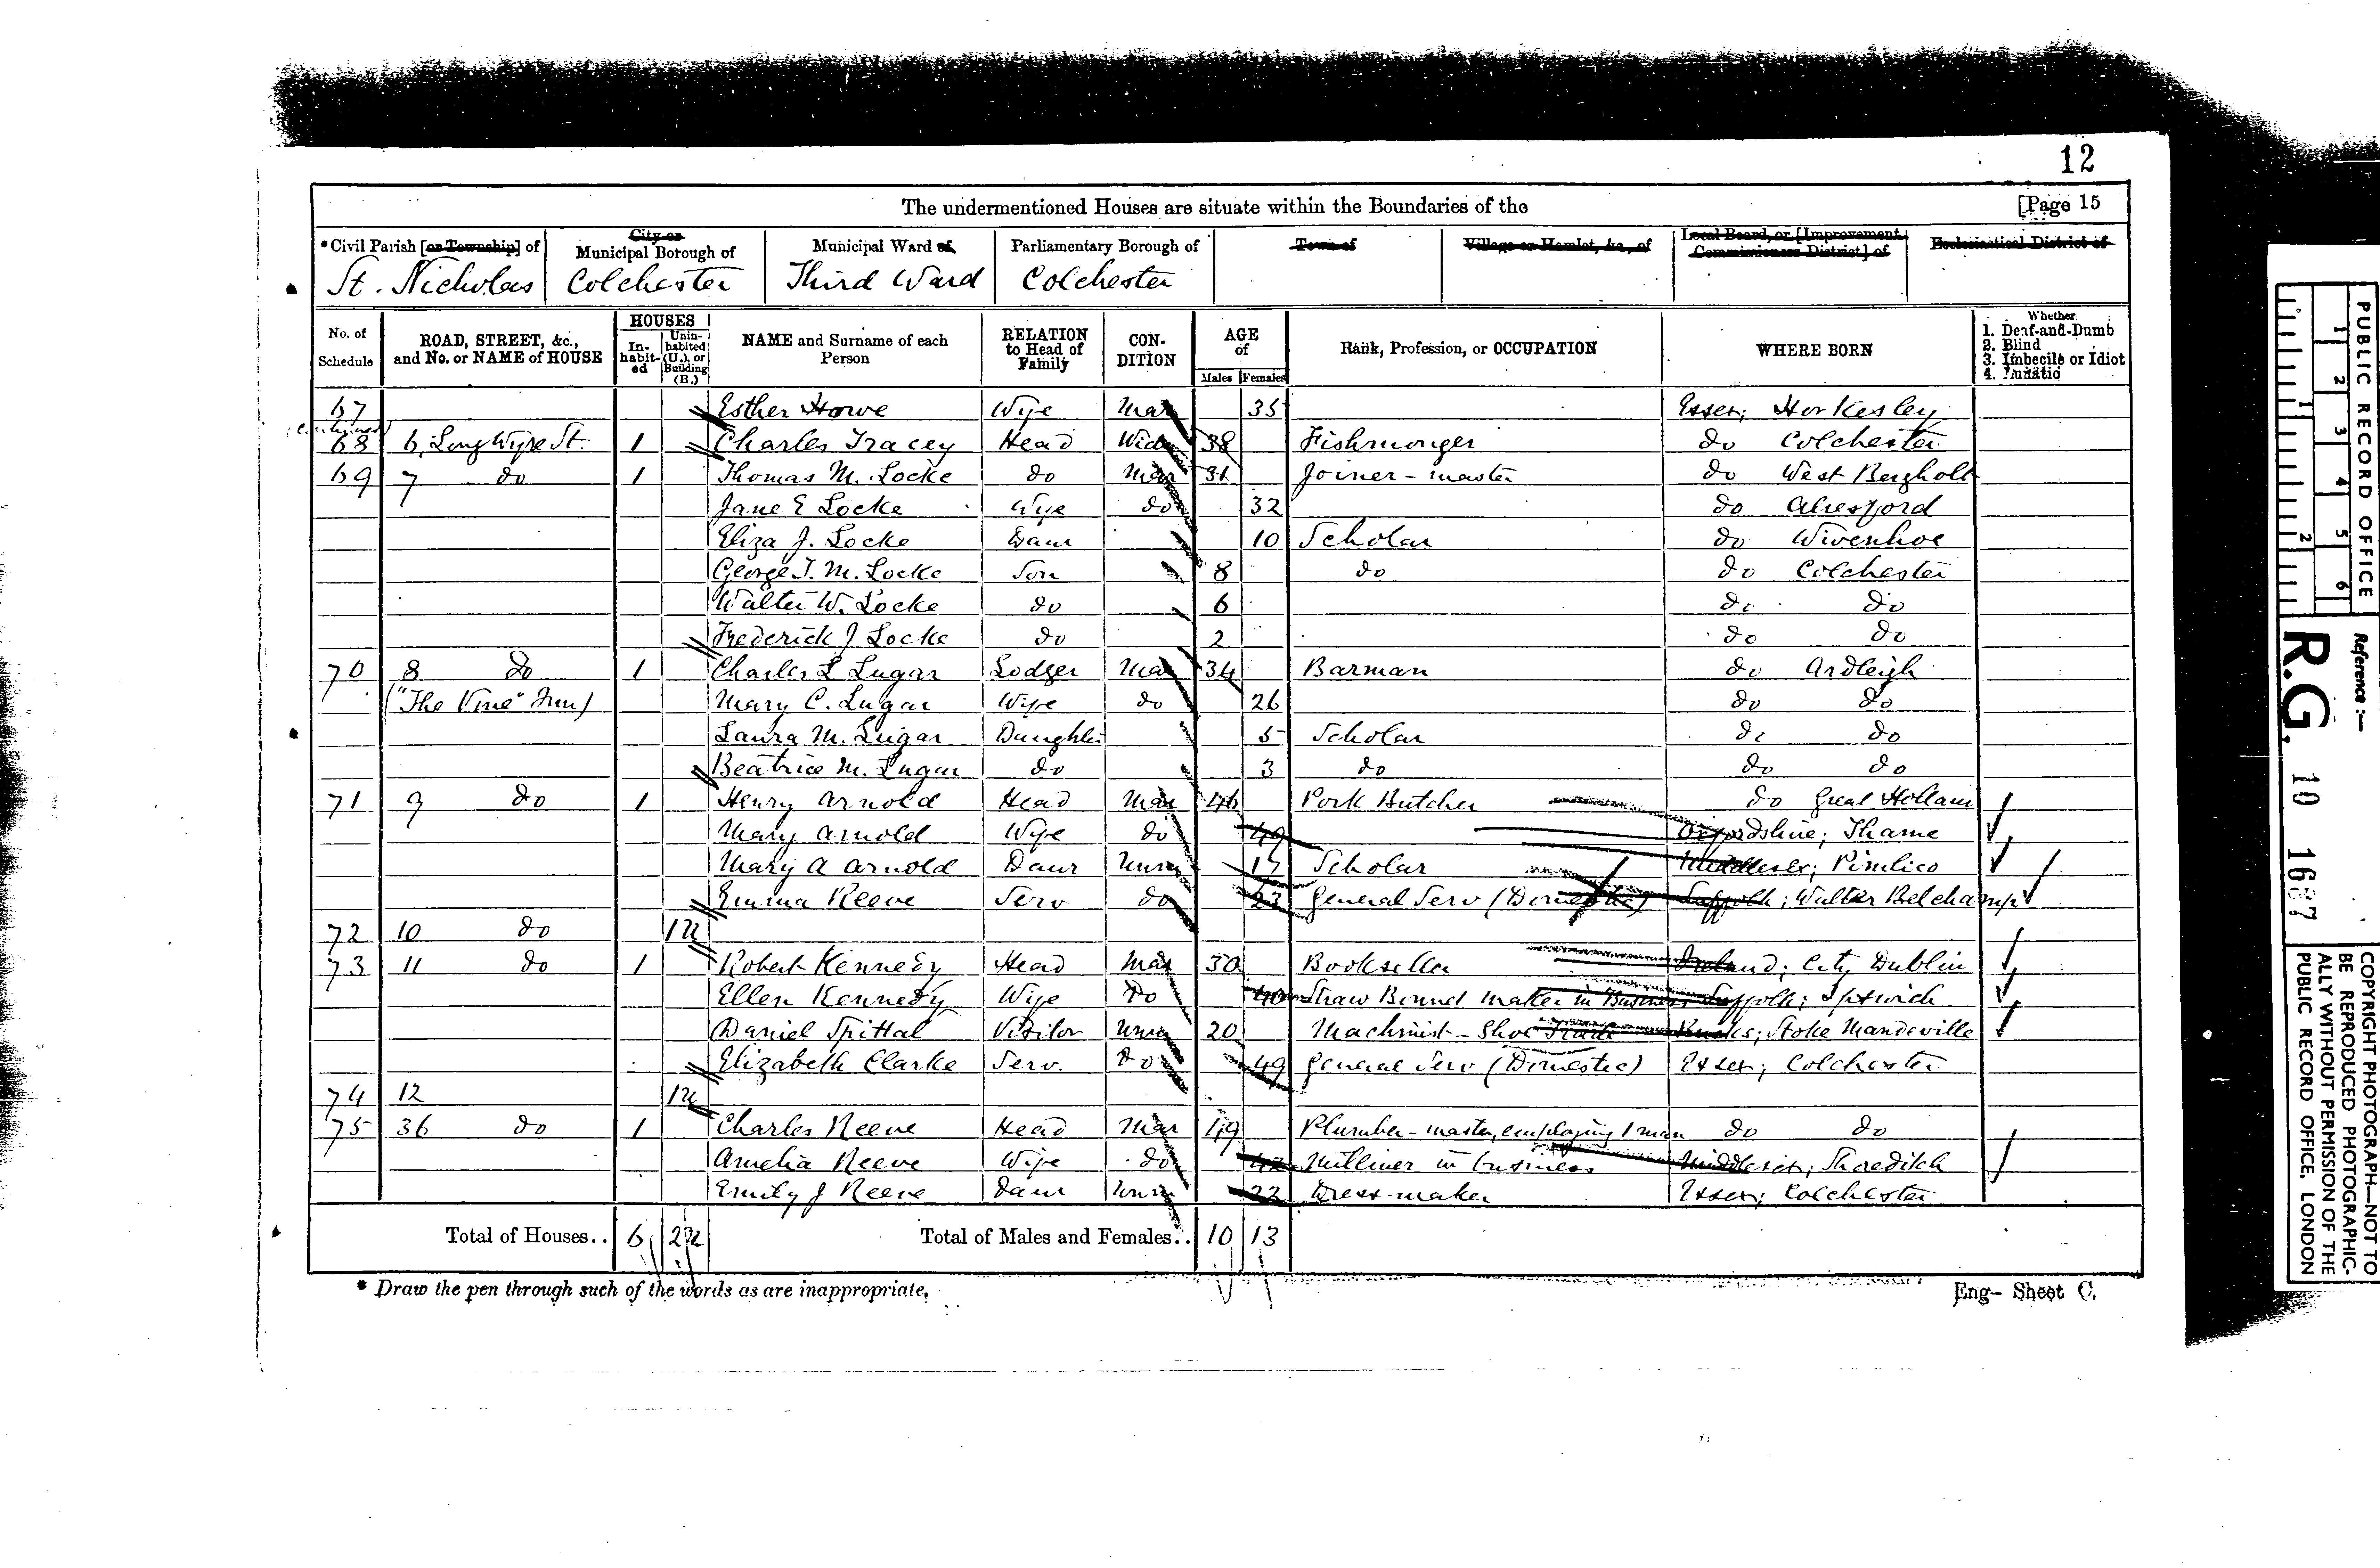 12
The undermentioned Houses are situate within the Boundaries of the [Page 15
*Civil Parish [or Township] of City or Municipal Borough of Municipal Ward of Parliamentary Borough of Town of Village or Hamlet, &c., of Local Board, or [Improvement Commissioners District] of Ecclesiastical District of
St. Nicholas Colchester Third Ward Colchester
No. of Schedule ROAD, STREET, &c., and No. or NAME of HOUSE HOUSES Inhabited Uninhabited (U.), or Building (B.) NAME and Surname of each Person RELATION to Head of Family CONDITION AGE of Males Females Rank, Profession, or OCCUPATION WHERE BORN Whether 1. Deaf-and-Dumb 2. Blind 3. Imbecile or Idiot 4. Lunatic
67 Esther Howe Wife Mar 35 Essex; Horkesley
continued
68 6, Long Wyre St. 1 Charles Tracey Head Wid 38 Fishmonger do Colchester
69 7 do 1 Thomas M. Locke do Mar 31 Joiner - master do West Bergholt
Jane E Locke Wife do 32 do Alresford
Eliza J. Locke Daur 10 Scholar do Wivenhoe
George T. M. Locke Son 8 do do Colchester
Walter W. Locke do 6 do do
Frederick J Locke do 2 do do
70 8 do 1 Charles L Lugar Lodger Mar 34 Barman do Ardleigh
("The Vine" Inn) Mary C. Lugar Wife do 26 do do
Laura M. Lugar Daughter 5 Scholar do do
Beatrice M. Lugar do 3 do do do
71 9 do 1 Henry Arnold Head Mar 46 Pork Butcher do Great Holland
Mary Arnold Wife do 49 Oxfordshire; Thame
Mary A Arnold Daur Unm 17 Scholar Middlesex; Pimlico
Emma Reeve Serv do 23 General Serv (Domestic) Suffolk; Walter Belchamp
72 10 do 1U
73 11 do 1 Robert Kennedy Head Mar 30 Bookseller Ireland; City Dublin
Ellen Kennedy Wife Do 40 Straw Bonnet maker in Business Suffolk; Ipswich
Daniel Spittal Visitor Unm 20 Machinist - Shoe Trade Bucks; Stoke Mandeville
Elizabeth Clarke Serv. Do 49 General Serv (Domestic) Essex; Colchester
74 12 1U
75 36 do 1 Charles Reeve Head Mar 49 Plumber - master, employing 1 man do do
Amelia Reeve Wife do 42 Milliner in business Middlesex; Shoreditch
Emily J Reeve Daur Unm 22 Dress-maker Essex; Colchester
Total of Houses.. 6 2U Total of Males and Females.. 10 13
* Draw the pen through such of the words as are inappropriate.
Eng- Sheet C.
PUBLIC RECORD OFFICE
1 2 3 4 5 6
1 2
Reference :—
R.G. 10 1687
COPYRIGHT PHOTOGRAPH—NOT TO
BE REPRODUCED PHOTOGRAPHIC-
ALLY WITHOUT PERMISSION OF THE
PUBLIC RECORD OFFICE, LONDON